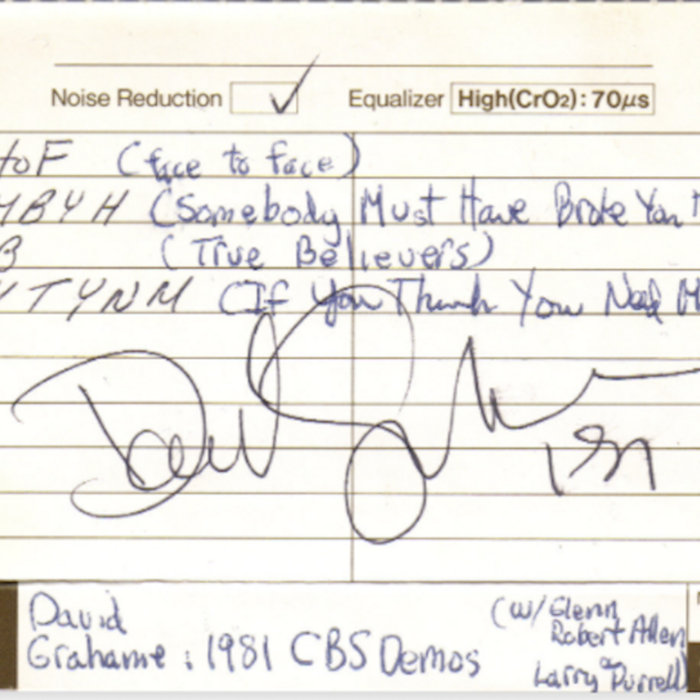 Noise Reduction Equalizer High(CrO2): 70μs
toF (face to face)
MBYH (Somebody Must Have Broke Your
B (True Believers)
YTYNM (If You Think You Need M
David
Grahame : 1981 CBS Demos
(w/ Glenn
Robert Allen
Larry Durrell)